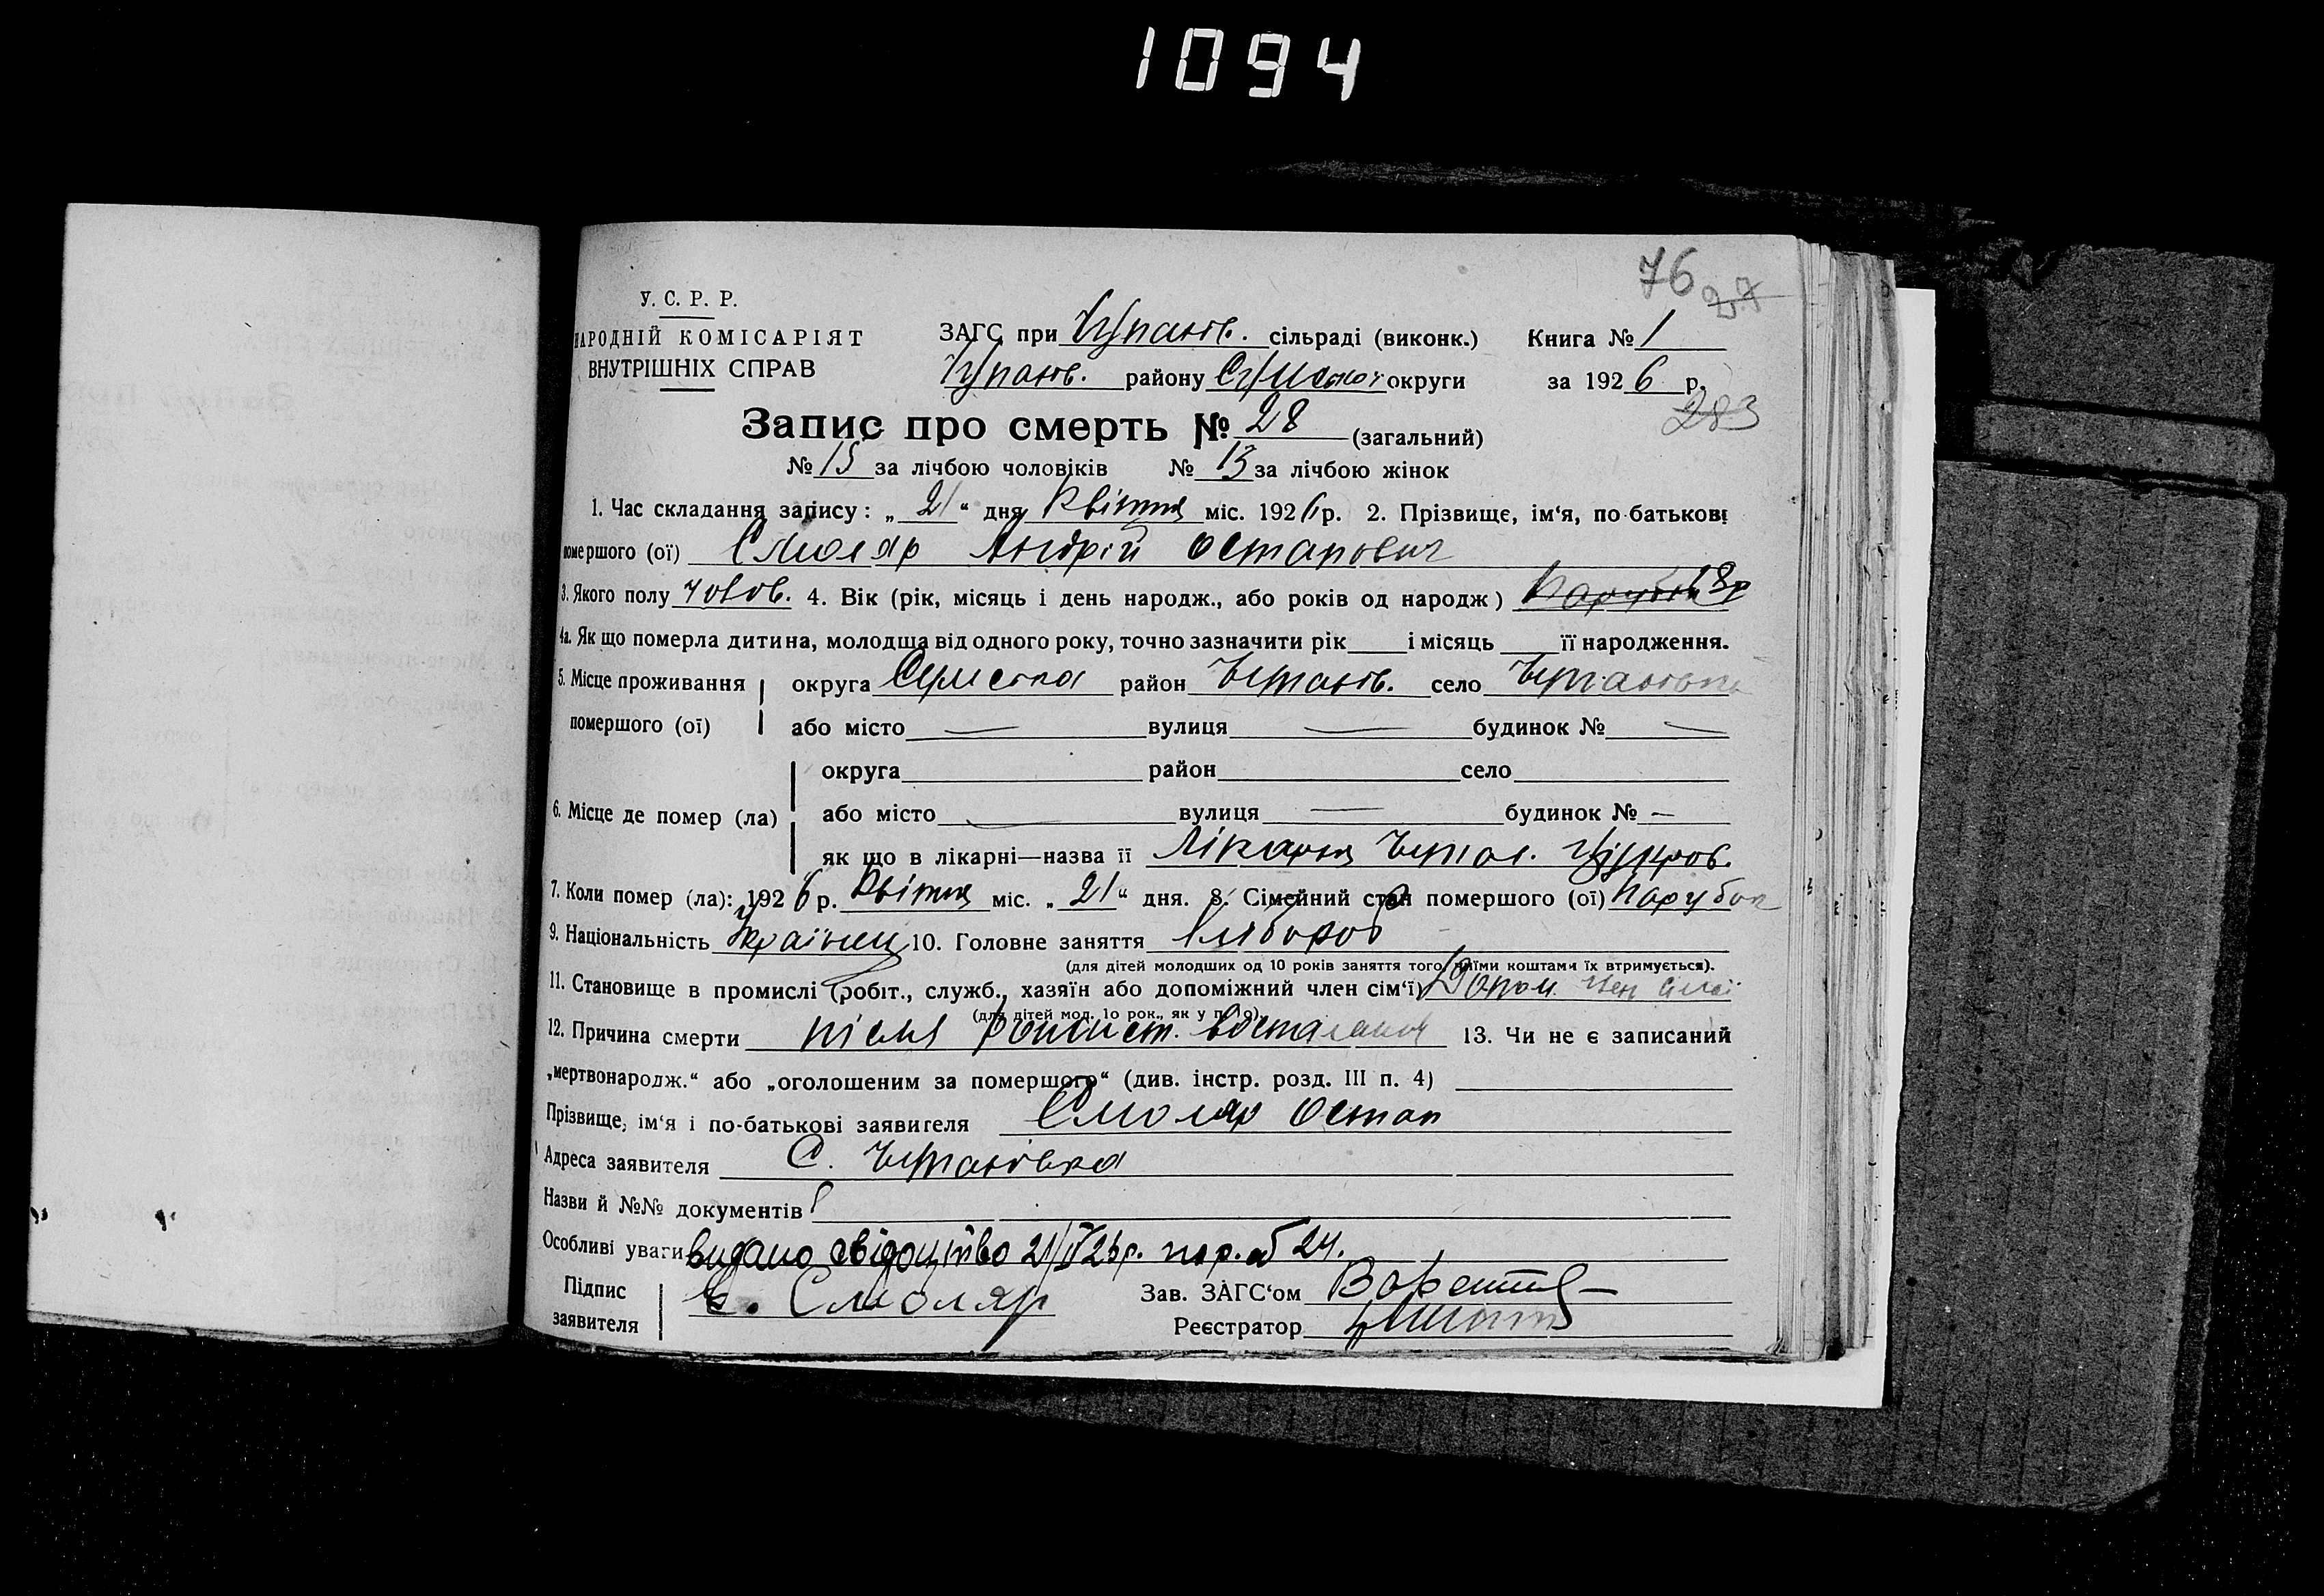 1094
76
27
У. С. Р. Р.
НАРОДНІЙ КОМІСАРІЯТ
ВНУТРІШНІХ СПРАВ
ЗАГС при сільраді (виконк.) Книга № 1
району округи за 1926 р.
283
Запис про смерть № 28 (загальний)
№ 15 за лічбою чоловіків № 13 за лічбою жінок
1. Час складання запису: „21“ дня Квітня міс. 1926 р. 2. Прізвище, ім‘я, по-батькові
помершого (ої) Смоляр Андрій Остапович
3. Якого полу чолов. 4. Вік (рік, місяць і день народж., або років од народж) Парубок 18р
4а. Як що померла дитина, молодша від одного року, точно зазначити рік і місяць її народження.
5. Місце проживання округа Сумська район село
помершого (ої) або місто — вулиця — будинок № —
округа район село
6. Місце де помер (ла) або місто — вулиця — будинок № —
як що в лікарні—назва її Лікарня
7. Коли помер (ла): 1926 р. Квітня міс. „21“ дня. 8. Сімейний стан помершого (ої) Парубок
9. Національність Українец 10. Головне заняття Хлібороб
(для дітей молодших од 10 років заняття того, чиїми коштами їх втримується).
11. Становище в промислі (робіт., служб., хазяїн або допоміжний член сім‘ї) Допом. член сімї
(для дітей мол. 1о рок., як у п. 1о).
12. Причина смерти після 13. Чи не є записаний
„мертвонародж.“ або „оголошеним за помершого“ (див. інстр. розд. III п. 4)
Прізвище, ім‘я і по-батькові заявителя Смоляр Остап
Адреса заявителя С.
Назви й №№ документів
Особливі уваги видано свідоцтво 21/IV 26р. 24.
Підпис
заявителя Смоляр
Зав. ЗАГС‘ом
Реєстратор